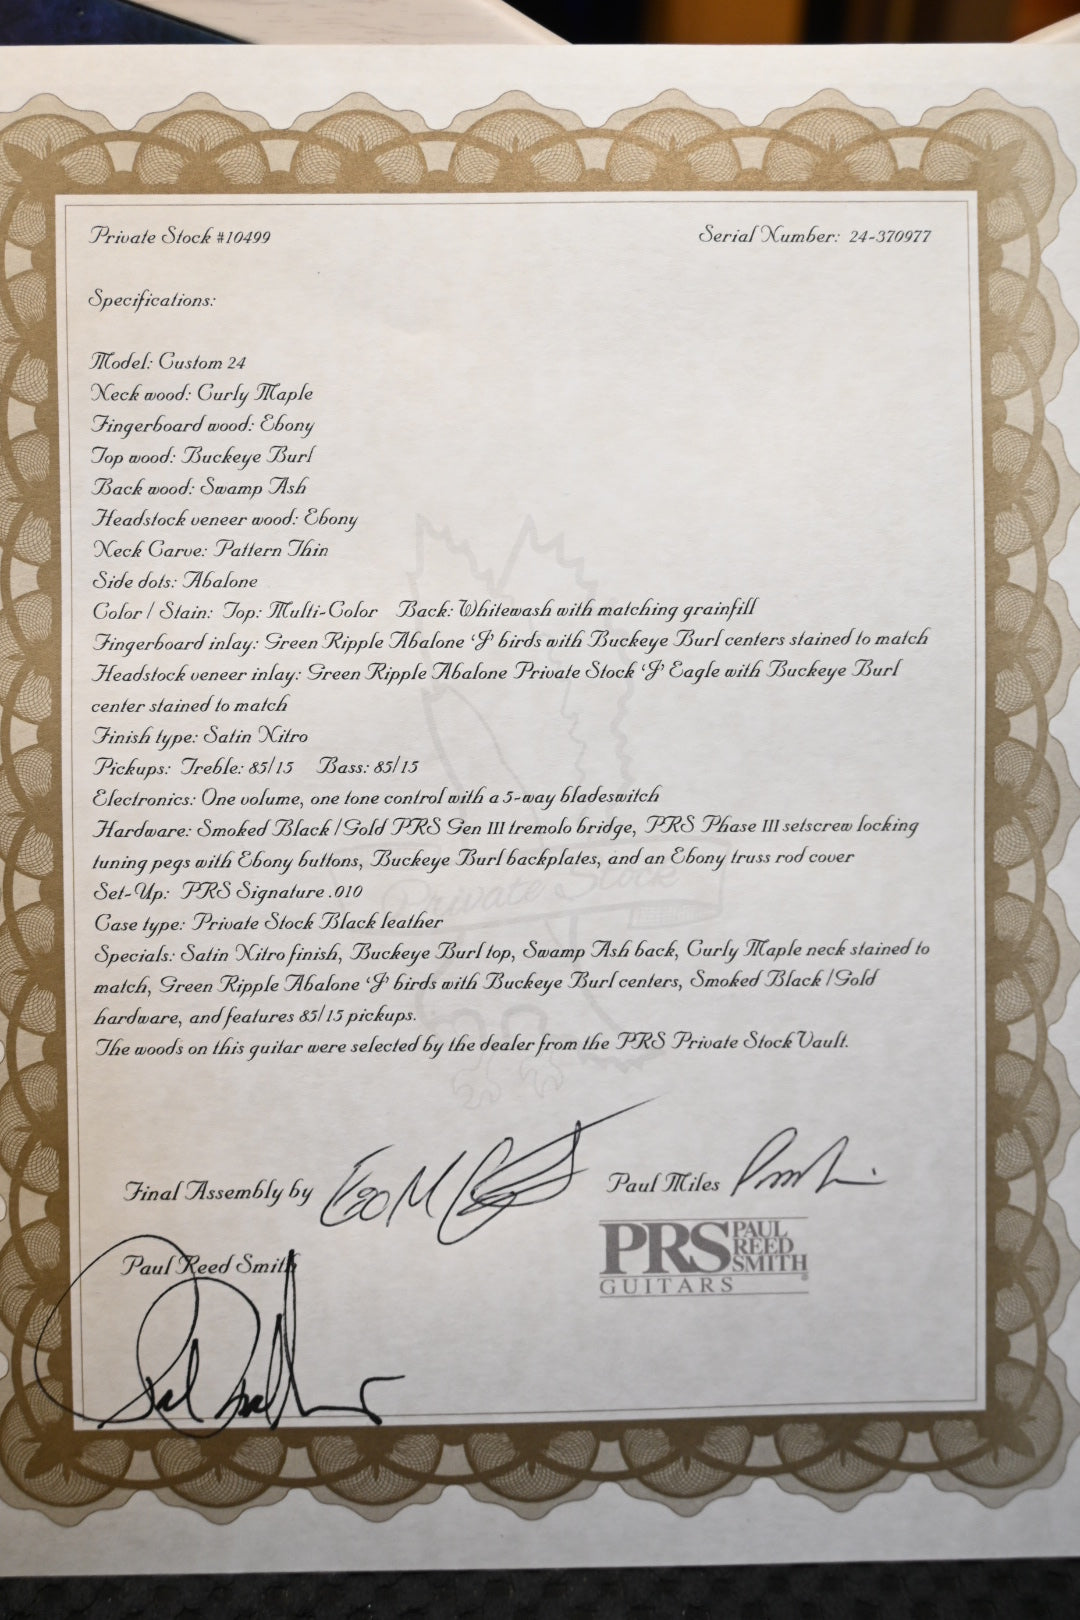 Private Stock #10499
Serial Number: 24-370977
Specifications:
Model: Custom 24
Neck wood: Curly Maple
Fingerboard wood: Ebony
Top wood: Buckeye Burl
Back wood: Swamp Ash
Headstock veneer wood: Ebony
Neck Carve: Pattern Thin
Side dots: Abalone
Color / Stain: Top: Multi-Color Back: Whitewash with matching grainfill
Fingerboard inlay: Green Ripple Abalone 'J' birds with Buckeye Burl centers stained to match
Headstock veneer inlay: Green Ripple Abalone Private Stock 'J' Eagle with Buckeye Burl
center stained to match
Finish type: Satin Nitro
Pickups: Treble: 85/15 Bass: 85/15
Electronics: One volume, one tone control with a 5-way bladeswitch
Hardware: Smoked Black / Gold PRS Gen III tremolo bridge, PRS Phase III setscrew locking
tuning pegs with Ebony buttons, Buckeye Burl backplates, and an Ebony truss rod cover
Set-Up: PRS Signature .010
Case type: Private Stock Black leather
Specials: Satin Nitro finish, Buckeye Burl top, Swamp Ash back, Curly Maple neck stained to
match, Green Ripple Abalone 'J' birds with Buckeye Burl centers, Smoked Black / Gold
hardware, and features 85/15 pickups.
The woods on this guitar were selected by the dealer from the PRS Private Stock Vault.
Private Stock
Final Assembly by
Paul Miles
Paul Reed Smith
PRS PAUL REED SMITH
GUITARS